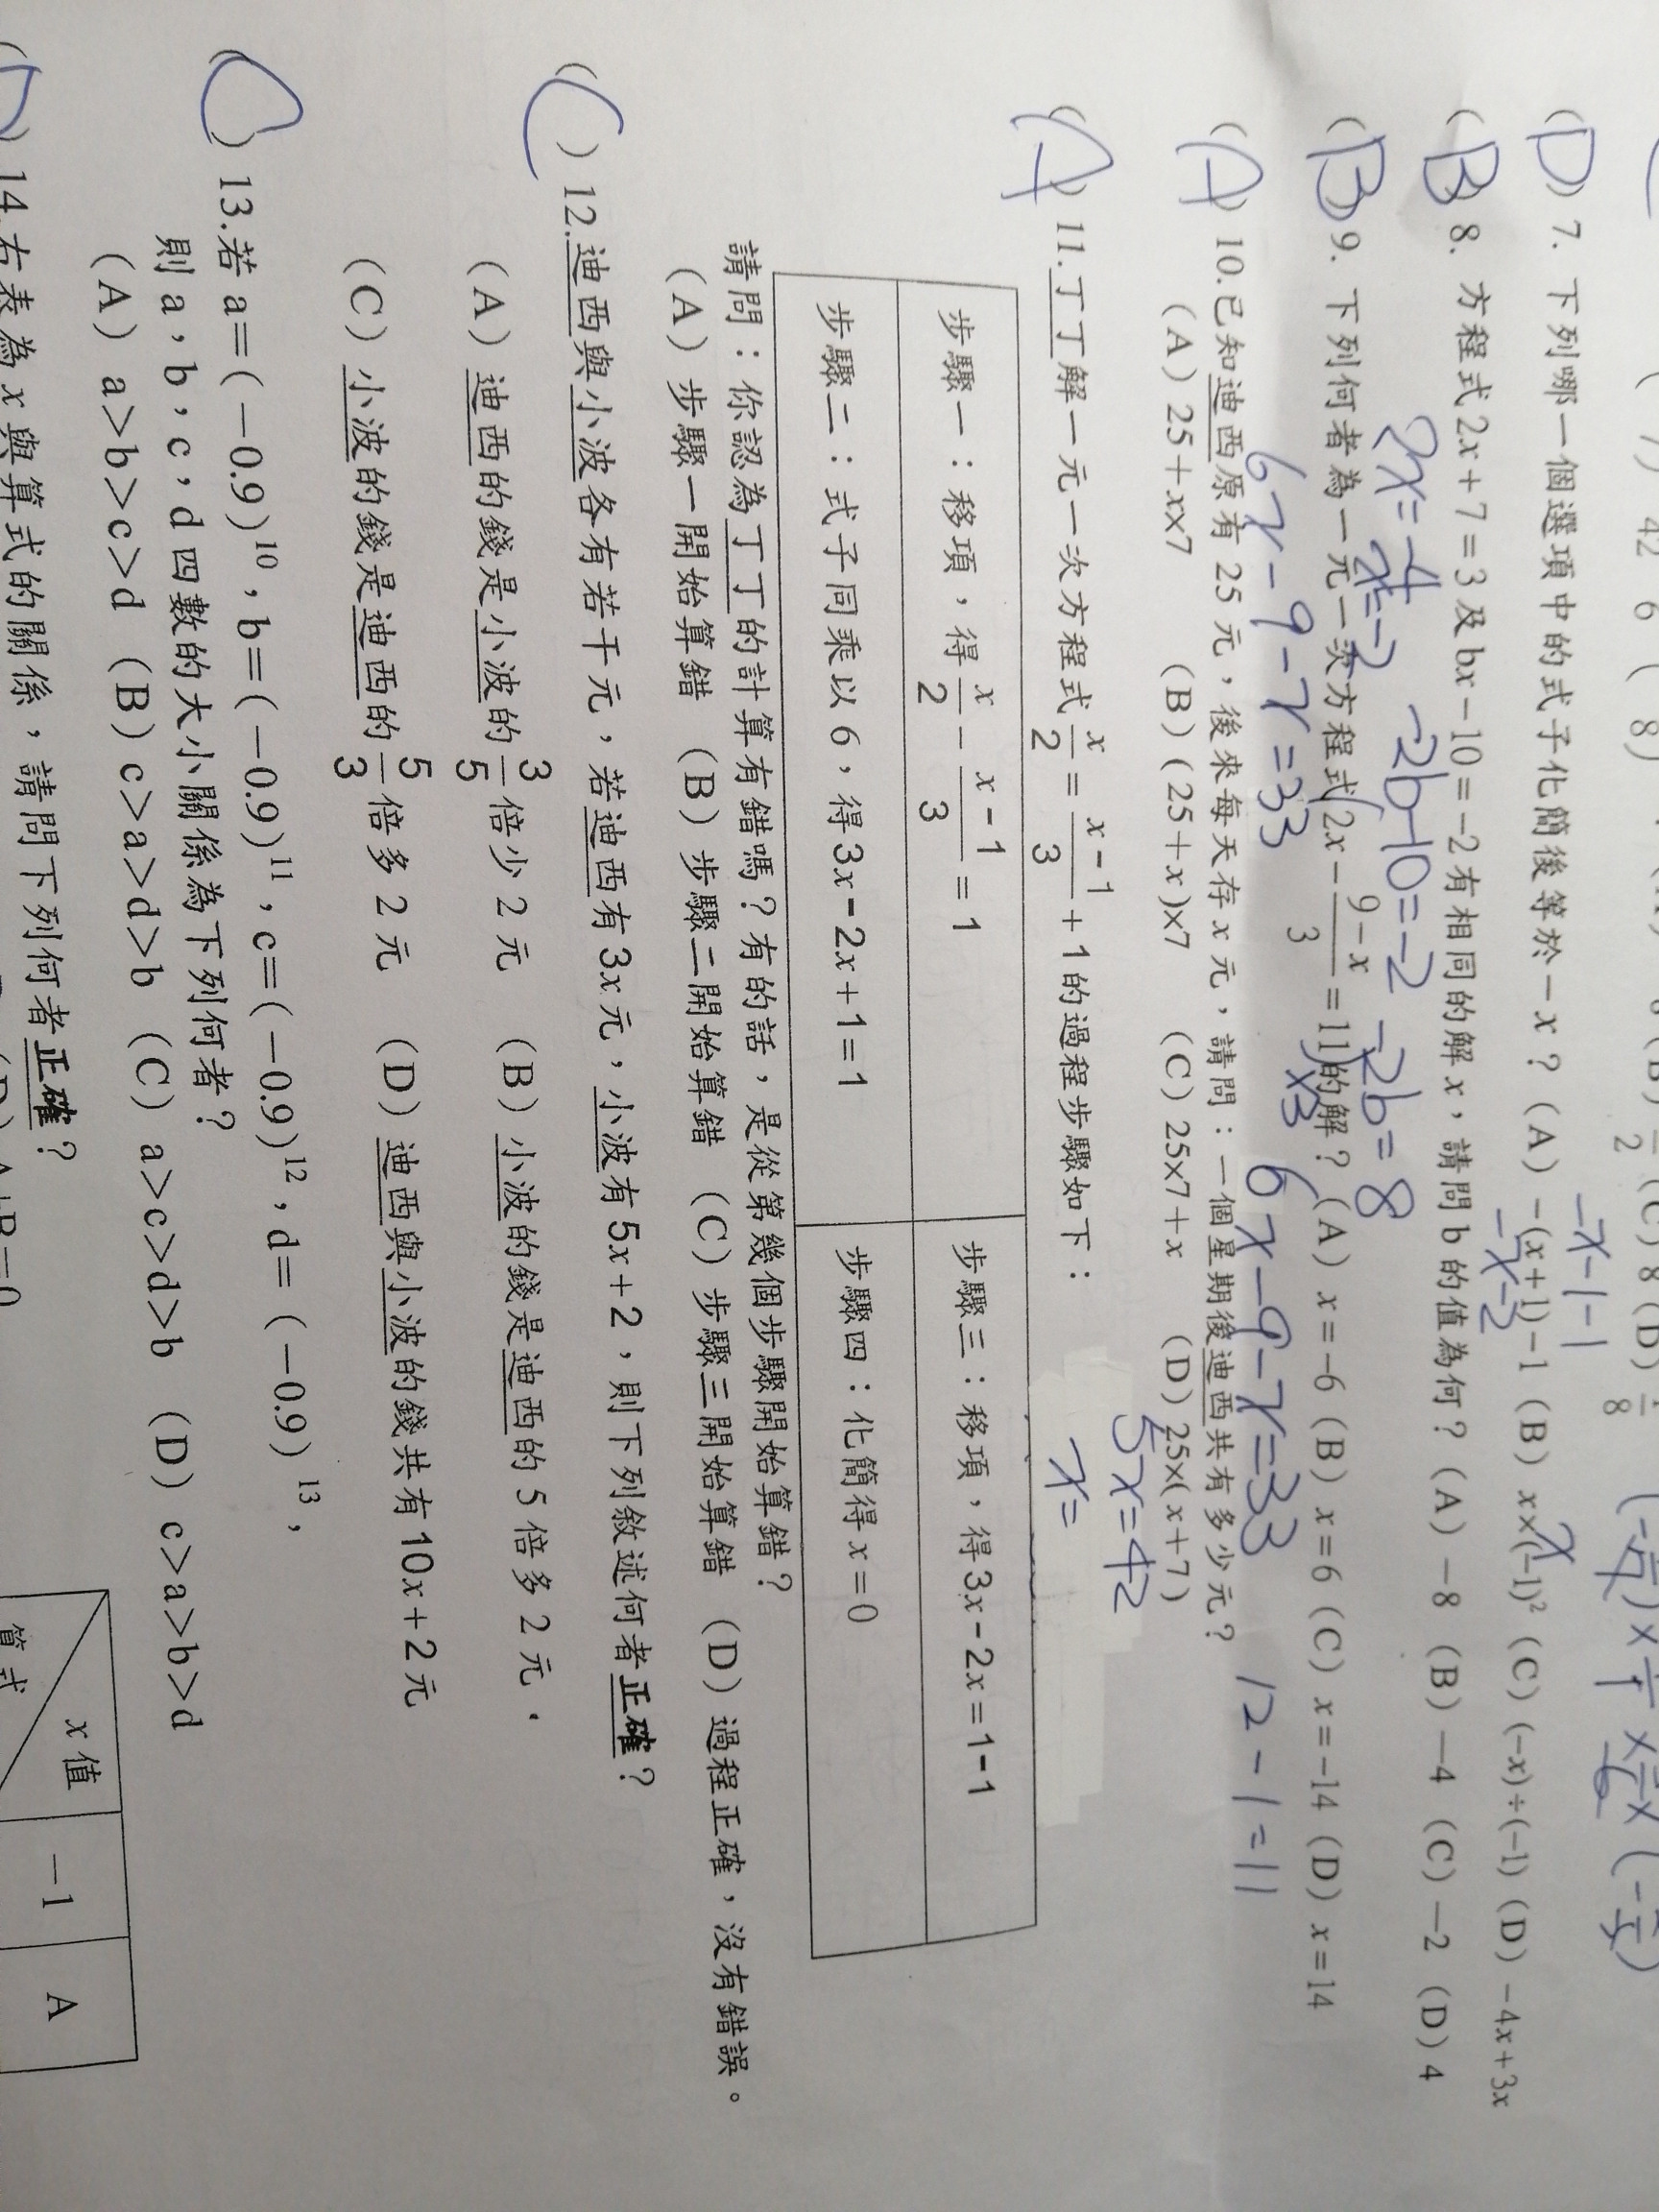 (D) 7. 下列哪一個選項中的式子化簡後等於－x？(A) －(x＋1)－1 (B) x×(－1)² (C) (－x)÷(－1) (D) －4x＋3x
－x－1－1
－x－2
x
(B) 8. 方程式2x＋7＝3 及 bx－10＝－2 有相同的解 x，請問 b 的值為何？(A) －8 (B) －4 (C) －2 (D) 4
2x＝－4
x＝－2
－2b－10＝－2
－2b＝8
(B) 9. 下列何者為一元一次方程式 2x－(9－x)/3＝11 的解？(A) x＝－6 (B) x＝6 (C) x＝－14 (D) x＝14
×3
6x－9－x＝33
6x－9－x＝33
12－1＝11
5x＝42
x＝
(A) 10.已知迪西原有 25 元，後來每天存 x 元，請問：一個星期後迪西共有多少元？
(A) 25＋x×7 (B) (25＋x)×7 (C) 25×7＋x (D) 25×(x＋7)
(A) 11.丁丁解一元一次方程式 x/2＝(x－1)/3＋1 的過程步驟如下：
步驟一：移項，得 x/2－(x－1)/3＝1
步驟三：移項，得3x－2x＝1－1
步驟二：式子同乘以 6，得3x－2x＋1＝1
步驟四：化簡得 x＝0
請問：你認為丁丁的計算有錯嗎？有的話，是從第幾個步驟開始算錯？
(A) 步驟一開始算錯 (B) 步驟二開始算錯 (C) 步驟三開始算錯 (D) 過程正確，沒有錯誤。
(C) 12.迪西與小波各有若干元，若迪西有3x元，小波有5x＋2，則下列敘述何者正確？
(A) 迪西的錢是小波的 3/5 倍少 2 元 (B) 小波的錢是迪西的 5 倍多 2 元．
(C) 小波的錢是迪西的 5/3 倍多 2 元 (D) 迪西與小波的錢共有10x＋2元
(C) 13.若 a＝(－0.9)¹⁰，b＝(－0.9)¹¹，c＝(－0.9)¹²，d＝(－0.9)¹³，
則 a，b，c，d 四數的大小關係為下列何者？
(A) a>b>c>d (B) c>a>d>b (C) a>c>d>b (D) c>a>b>d
(D) 14.右表為 x 與算式的關係，請問下列何者正確？
x 值 －1 A
算式